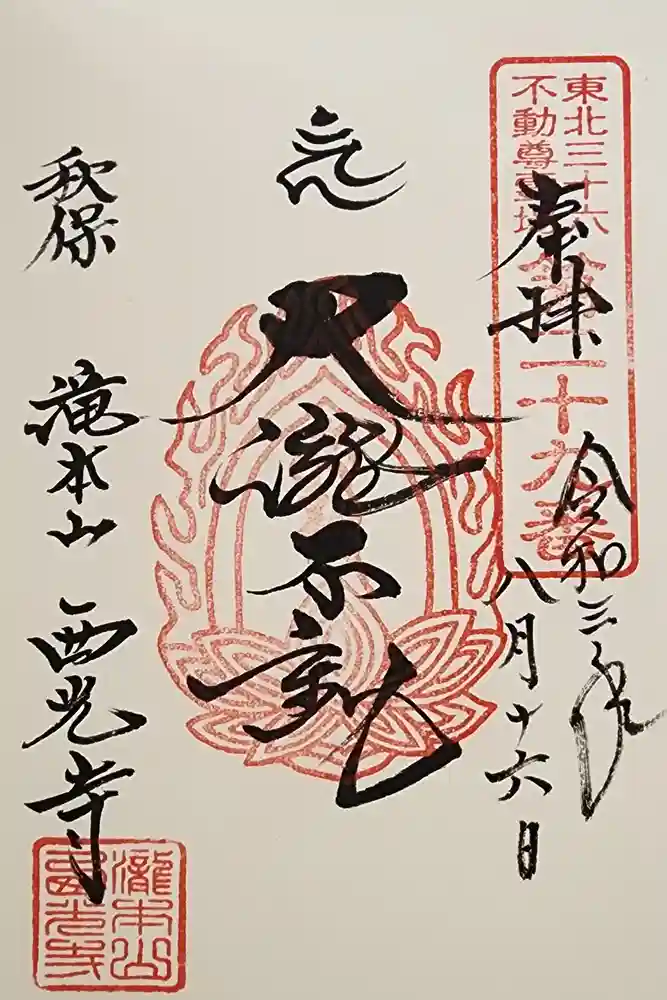 東北三十六
不動尊霊場
第二十九番
奉拝
令和三年
八月十六日
大滝不動
秋保
滝本山
西光寺
瀧本山
西光寺